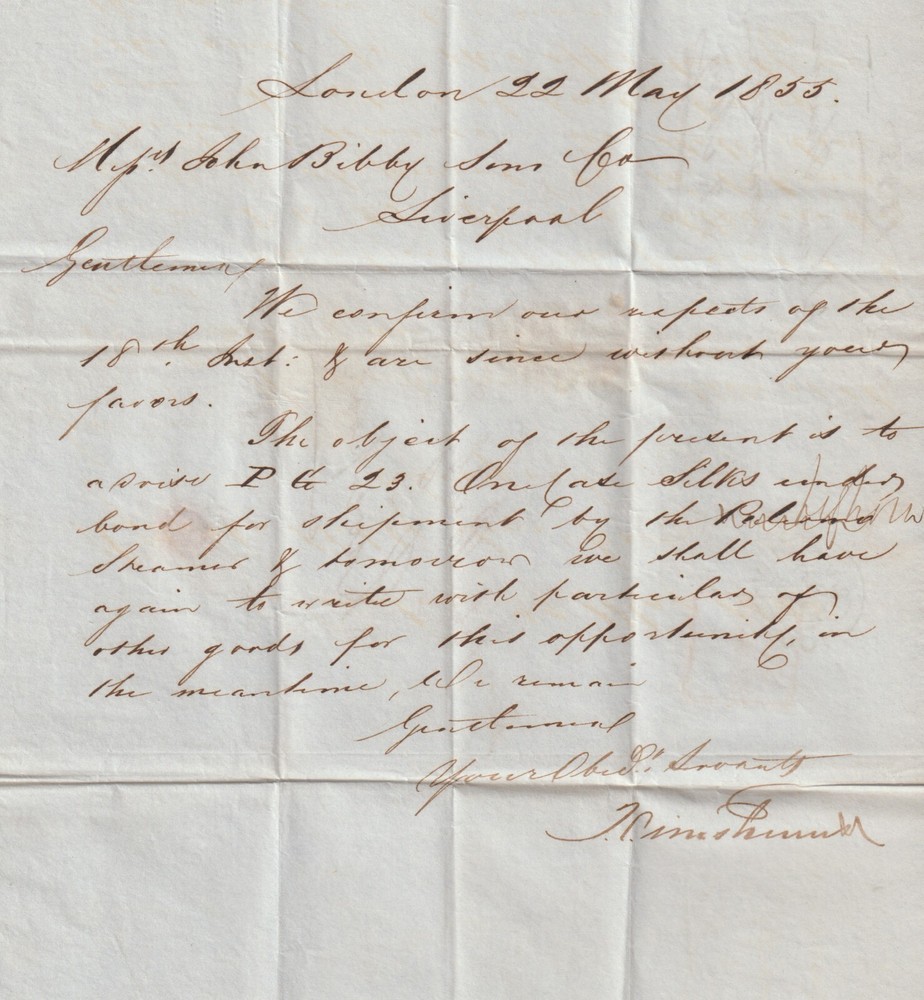 London 22 May 1855.
Messrs. John Bibby Sons Co
Liverpool
Gentlemen
We confirm our respects of the
18th Inst: & are since without your
favors.
The object of the present is to
advise P 23. One Case Silks under
bond for shipment by the
Steamer & tomorrow we shall have
again to write with particulars of
other goods for this opportunity, in
the meantime, We remain
Gentlemen
Your Obedt. Servants